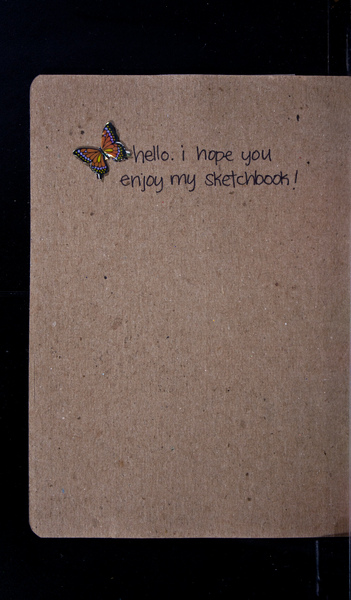 hello. i hope you
enjoy my sketchbook!